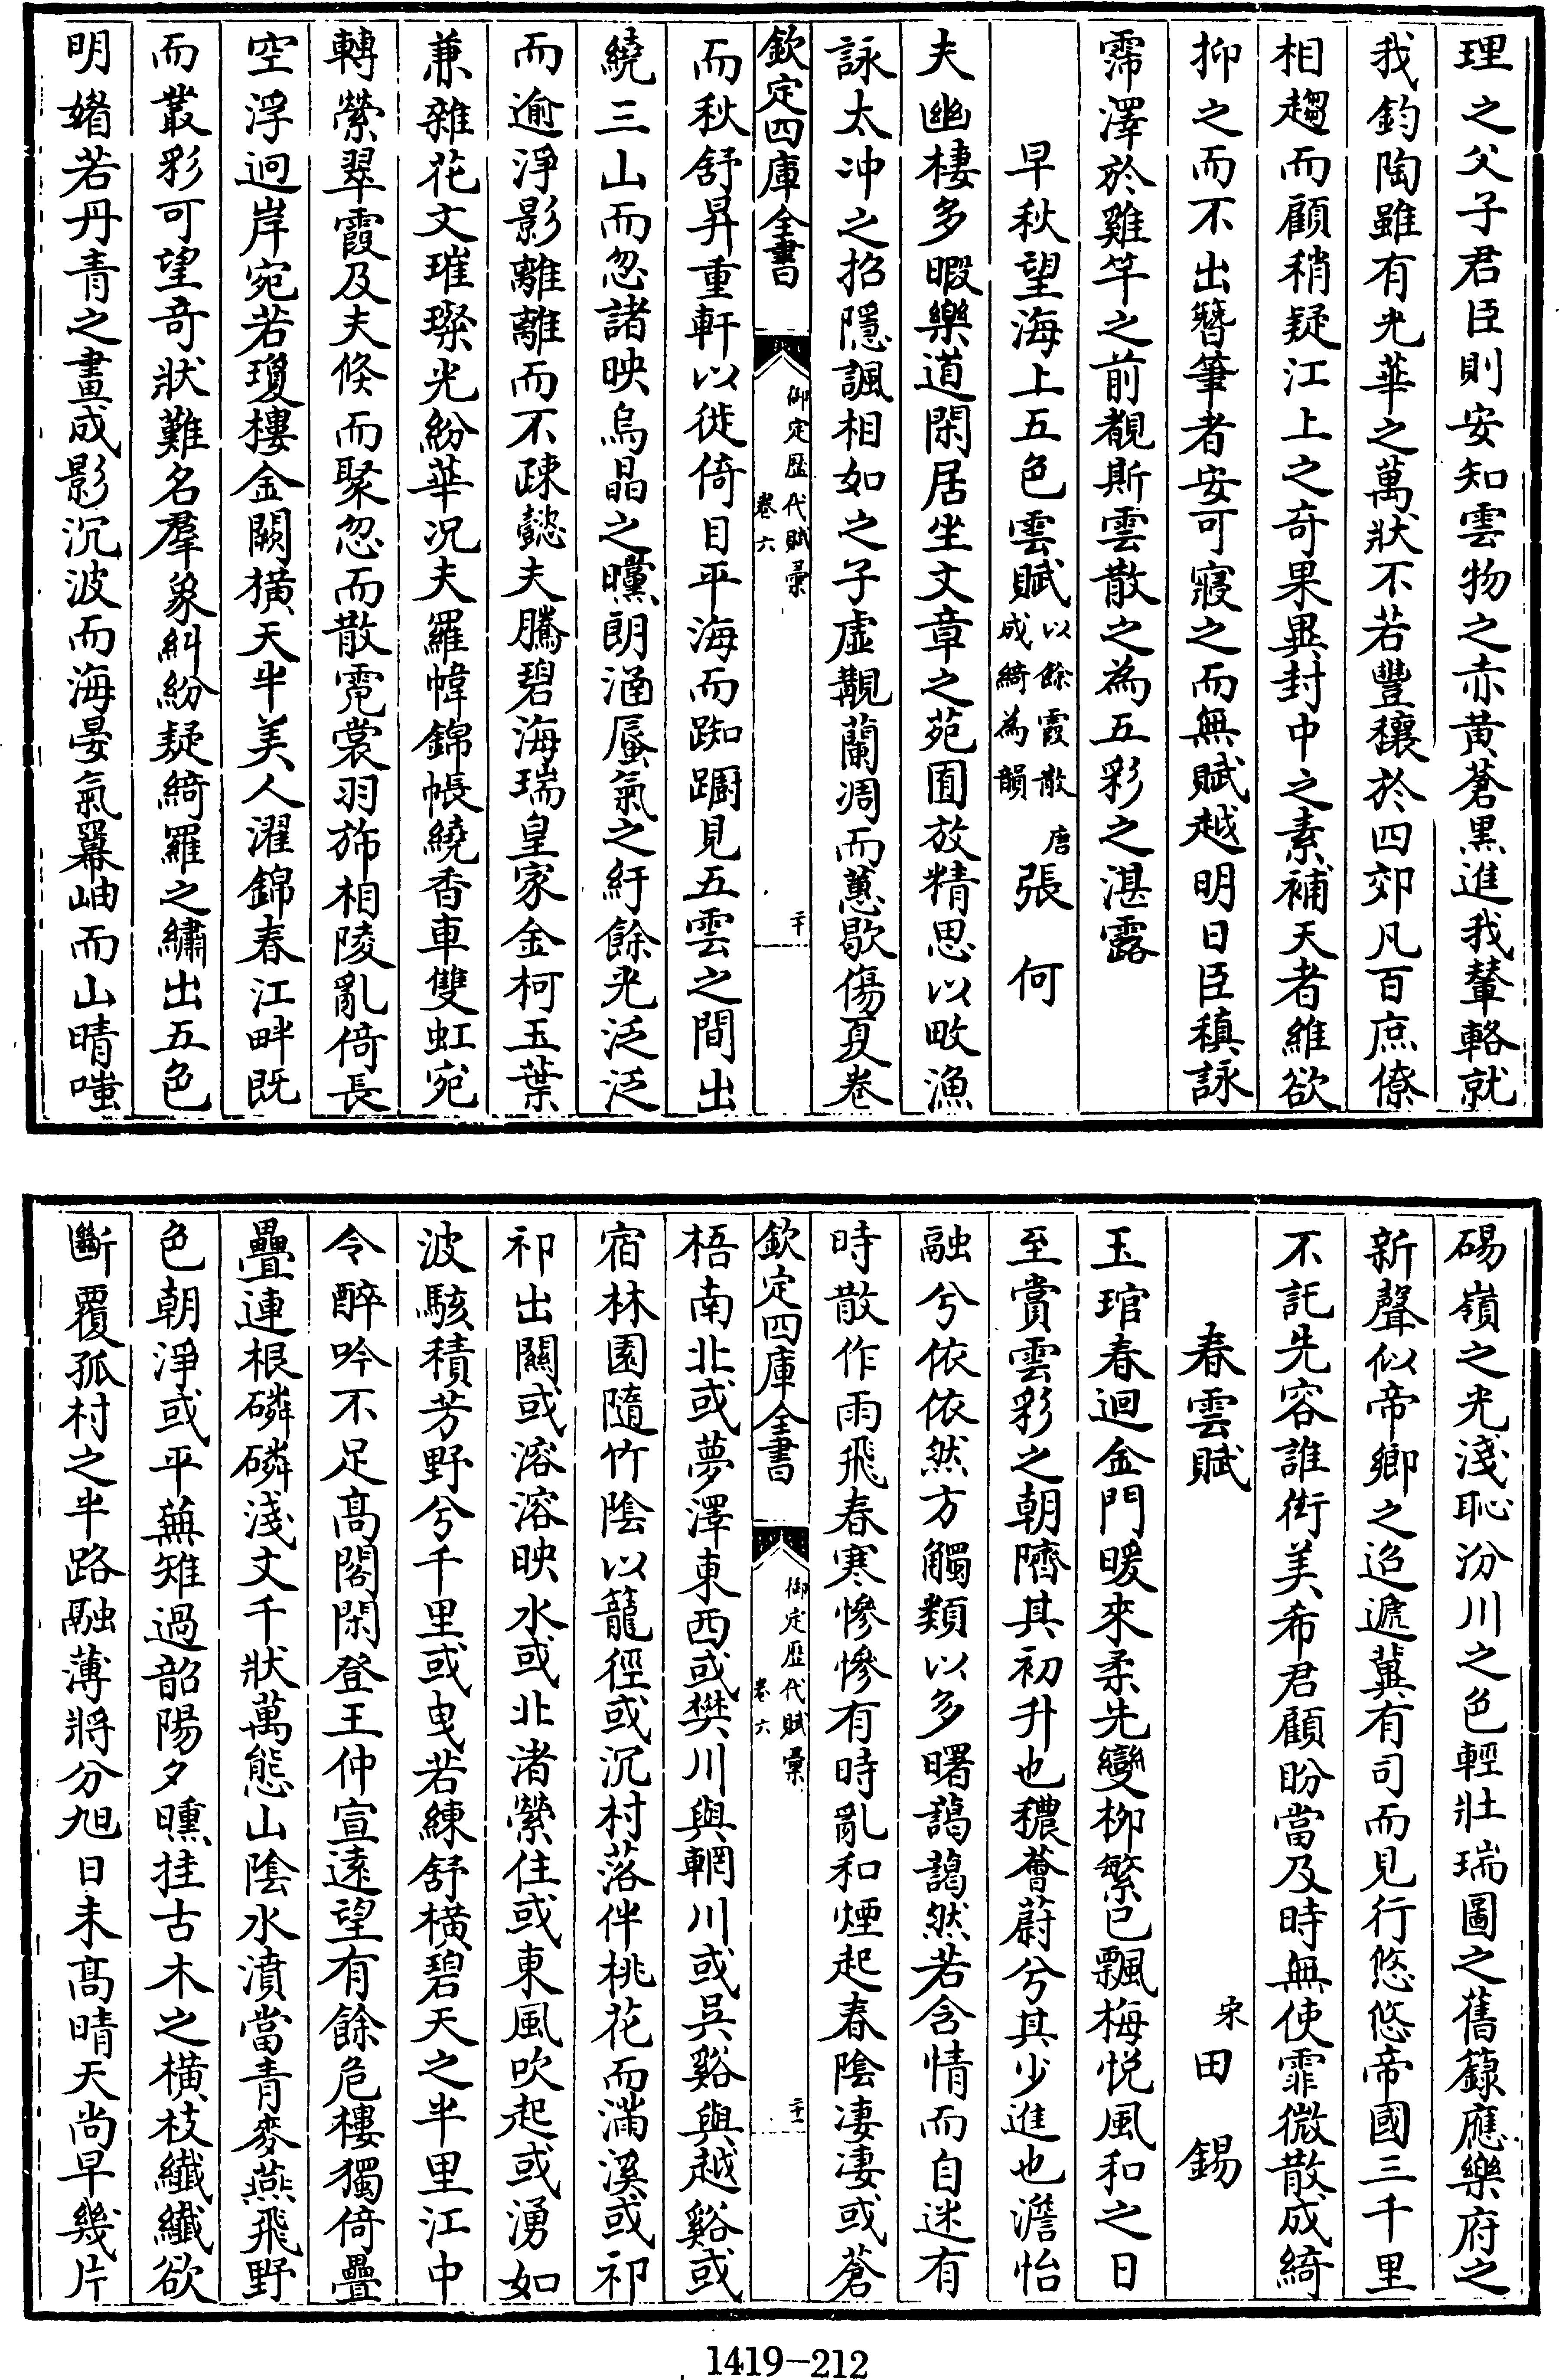 理之父子君臣則安知雲物之赤黃蒼黑進我輦輅就
我鈞陶雖有光華之萬狀不若豐穰於四郊凡百庶僚
相趨而顧稍疑江上之奇果異封中之素補天者維欲
抑之而不出簪筆者安可寢之而無賦越明日臣稹詠
霈澤於雞竿之前覩斯雲散之為五彩之湛露
早秋望海上五色雲賦以餘霞散成綺為韻 唐張何
夫幽棲多暇樂道閑居坐文章之苑囿放精思以畋漁
詠太冲之招隱諷相如之子虛覯蘭凋而蕙歇傷夏卷
欽定四庫全書 御定歷代賦彙卷六 二十
而秋舒昇重軒以徙倚目平海而踟躕見五雲之間出
繞三山而忽諸映烏晶之曭朗涵蜃氣之紆餘光泛泛
而逾淨影離離而不疎懿夫騰碧海瑞皇家金柯玉葉
兼雜花文璀璨光紛華况夫羅幃錦帳繞香車雙虹宛
轉縈翠霞及夫倏而聚忽而散霓裳羽斾相陵亂倚長
空浮迥岸宛若瓊樓金闕橫天半美人濯錦春江畔既
而叢彩可望奇狀難名羣象糾紛疑綺羅之繡出五色
明媚若丹青之畫成影沉波而海晏氣羃岫而山晴嗤
碭嶺之光淺恥汾川之色輕壯瑞圖之舊籙應樂府之
新聲似帝鄉之迢遞冀有司而見行悠悠帝國三千里
不託先容誰衒美希君顧盼當及時無使霏微散成綺
春雲賦 宋田錫
玉琯春迴金門暖來柔先變柳繁已飄梅悅風和之日
至賞雲彩之朝隮其初升也穠薈蔚兮其少進也澹怡
融兮依依然方觸類以多曙藹藹然若含情而自迷有
時散作雨飛春寒慘慘有時亂和煙起春陰淒淒或蒼
欽定四庫全書 御定歷代賦彙卷六 二十一
梧南北或夢澤東西或樊川與輞川或吳谿與越谿或
宿林園隨竹陰以籠徑或沉村落伴桃花而滿溪或祁
祁出關或溶溶映水或北渚縈住或東風吹起或湧如
波駭積芳野兮千里或曳若練舒橫碧天之半里江中
令醉吟不足高閣閑登王仲宣遠望有餘危樓獨倚疊
疊連根磷磷淺文千狀萬態山陰水濆當青麥燕飛野
色朝淨或平蕪雉過韶陽夕曛挂古木之橫枝纖纖欲
斷覆孤村之半路融薄將分旭日未高晴天尚早幾片
1419-212